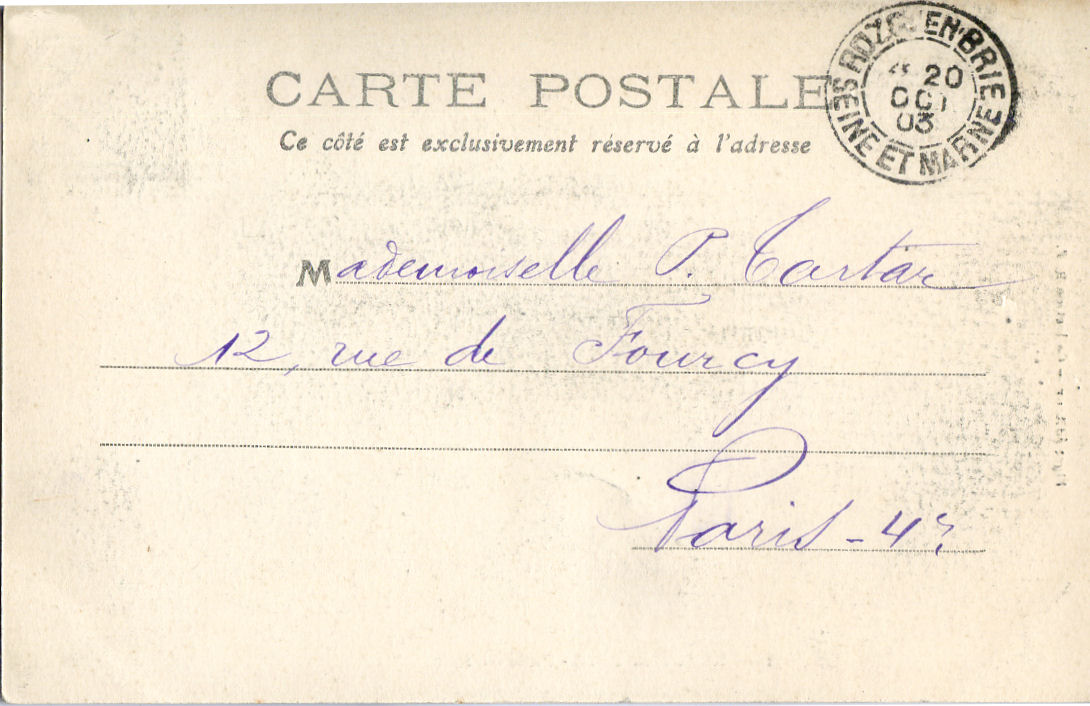 CARTE POSTALE
Ce côté est exclusivement réservé à l'adresse
EN-BRIE
20
OCT
03
SEINE ET MARNE
Mademoiselle P. Tartar
12, rue de Fourcy
Paris - 4e